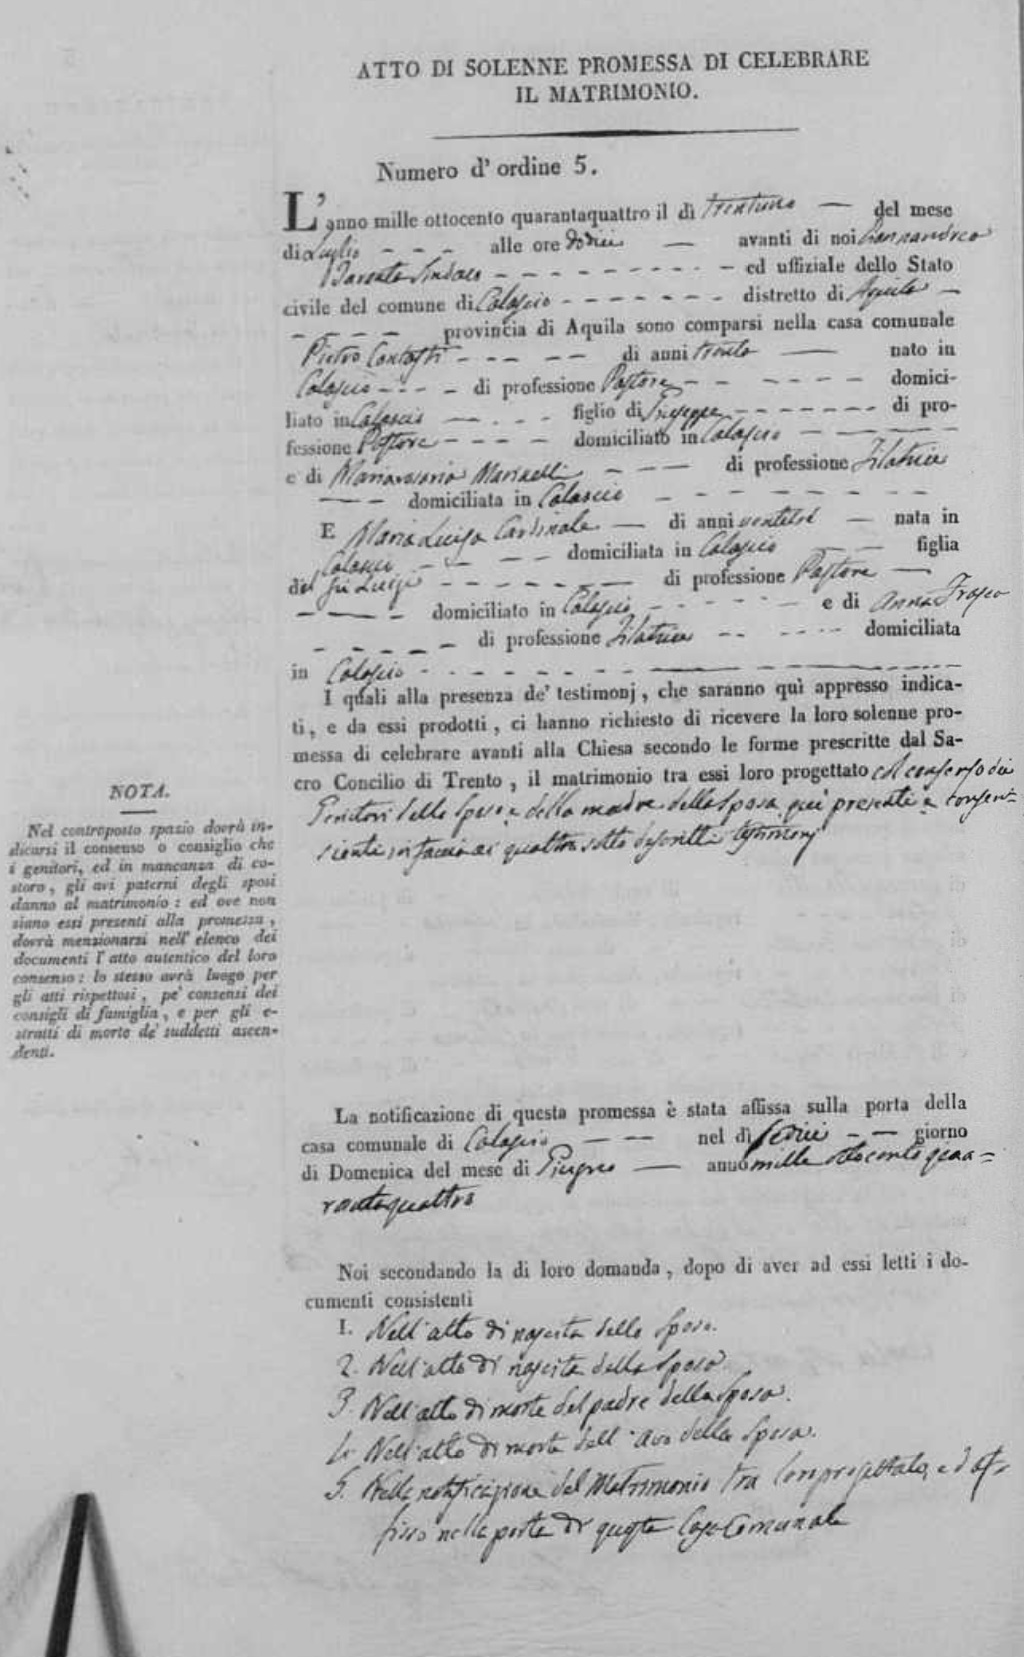 ATTO DI SOLENNE PROMESSA DI CELEBRARE
IL MATRIMONIO.
Numero d' ordine 5.
L' anno mille ottocento quarantaquattro il dì trentuno — del mese
di Luglio - - - alle ore dodici — avanti di noi Giannandrea
Sindaco - - - - - - - - - ed uffiziale dello Stato
civile del comune di Calascio - - - - - - - distretto di Aquila —
- - - - provincia di Aquila sono comparsi nella casa comunale
Pietro - - - - - di anni trenta — nato in
Calascio - - - - di professione Pastore - - - - - - domici-
liato in Calascio - - - - figlio di Giuseppe - - - - - - - di pro-
fessione Pastore - - - - domiciliato in Calascio - - - - - -
e di Mariarosaria Marinelli - - - - di professione Filatrice
- - - domiciliata in Calascio - - - - - - - - -
E Maria Luigia Cardinale — di anni — nata in
Calascio - - - - domiciliata in Calascio - - - figlia
del fu Luigi - - - - - - - - di professione Pastore —
- - - - domiciliato in Calascio - - - - - - e di Anna
- - - - - di professione Filatrice - - - - - domiciliata
in Calascio - - - - - - - - - - - - - - -
I quali alla presenza de' testimonj, che saranno quì appresso indica-
ti, e da essi prodotti, ci hanno richiesto di ricevere la loro solenne pro-
messa di celebrare avanti alla Chiesa secondo le forme prescritte dal Sa-
cro Concilio di Trento, il matrimonio tra essi loro progettato col consenso dei
Genitori dello Sposo e della madre della Sposa quì presenti e consen-
zienti in faccia ai quattro sotto descritti testimonj
NOTA.
Nel controposto spazio dovrà in-
dicarsi il consenso o consiglio che
i genitori, ed in mancanza di co-
storo, gli avi paterni degli sposi
danno al matrimonio: ed ove non
siano essi presenti alla promessa,
dovrà menzionarsi nell' elenco dei
documenti l' atto autentico del loro
consenso: lo stesso avrà luogo per
gli atti rispettosi, pe' consensi dei
consigli di famiglia, e per gli e-
stratti di morte de' suddetti ascen-
denti.
La notificazione di questa promessa è stata affissa sulla porta della
casa comunale di Calascio — — — nel dì sedici - — giorno
di Domenica del mese di Giugno — anno mille ottocento qua=
rantaquattro
Noi secondando la di loro domanda, dopo di aver ad essi letti i do-
cumenti consistenti
1. Nell'atto di nascita dello Sposo.
2. Nell'atto di nascita della Sposa
3. Nell'atto di morte del padre della Sposa.
4. Nell'atto di morte dell'Avo della Sposa.
5. Nella notificazione del Matrimonio tra loro progettato, ed af-
fisso nella porta di questa Casa Comunale